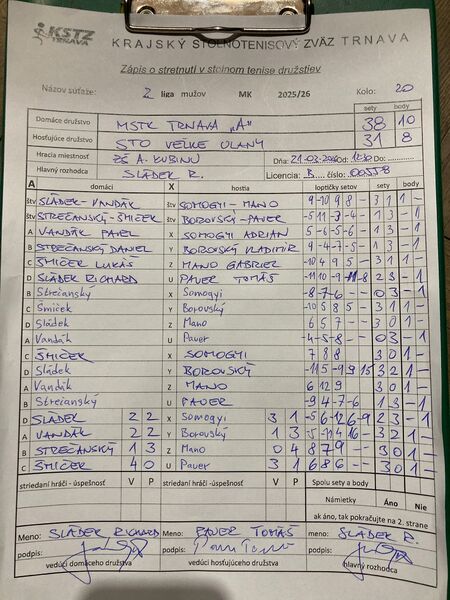 KSTZ TRNAVA
KRAJSKÝ STOLNOTENISOVÝ ZVÄZ TRNAVA
Zápis o stretnutí v stolnom tenise družstiev
Názov súťaže: 2 liga mužov MK 2025/26 Kolo: 20
sety body
Domáce družstvo MSTK TRNAVA „A" 38 10
Hosťujúce družstvo STO VEĽKÉ ÚĽANY 31 8
Hracia miestnosť ZŠ A. KUBINU Dňa: 21-03-2026 Od: Do:
Hlavný rozhodca SLÁDEK R. Licencia: B číslo: 00558
A domáci X hostia loptičky setov sety body
štv SLÁDEK-VANDÁK štv SOMOGYI-MANO 9 -10 9 8 - 3 1 1 -
štv STREČANSKÝ-ŠMIČEK štv BOROVSKÝ-PAVER -5 11 -7 -4 - 1 3 - 1
A VANDÁK PAVEL X SOMOGYI ADRIAN 5 -6 -5 -6 - 1 3 - 1
B STREČANSKÝ DANIEL Y BOROVSKÝ VLADIMÍR -9 -4 7 -5 - 1 3 - 1
C ŠMIČEK LUKÁŠ Z MANO GABRIEL -10 4 9 5 - 3 1 1 -
D SLÁDEK RICHARD U PAVER TOMÁŠ -11 10 -9 11 -8 2 3 - 1
B Strečanský X Somogyi -8 -7 -6 - - 0 3 - 1
C Šmiček Y Borovský -10 5 8 5 - 3 1 1 -
D Sládek Z Mano 6 5 7 - - 3 0 1 -
A Vandák U Paver -4 -5 -8 - - 0 3 - 1
C ŠMIČEK X SOMOGYI 7 8 8 3 0 1 -
D Sládek Y BOROVSKÝ -11 5 -9 9 15 3 2 1 -
A Vandák Z MANO 6 12 9 3 0 1 -
B Strečanský U PAVER -9 4 -7 -6 - 1 3 - 1
D SLÁDEK 2 2 X Somogyi 3 1 -5 6 -12 6 -9 2 3 - 1
A VANDÁK 2 2 Y Borovský 1 3 3 2 1 -
B STREČANSKÝ 1 3 Z Mano 0 4 8 7 9 - - 3 0 1 -
C ŠMIČEK 4 0 U Paver 3 1 6 8 6 - - 3 0 1 -
striedaní hráči - úspešnosť V P striedaní hráči - úspešnosť V P Spolu sety a body
Námietky Áno Nie
ak áno, tak pokračujte na 2. strane
Meno: SLÁDEK RICHARD Meno: PAVER TOMÁŠ Meno: SLÁDEK R.
podpis: podpis: podpis:
vedúci domáceho družstva vedúci hosťujúceho družstva hlavný rozhodca